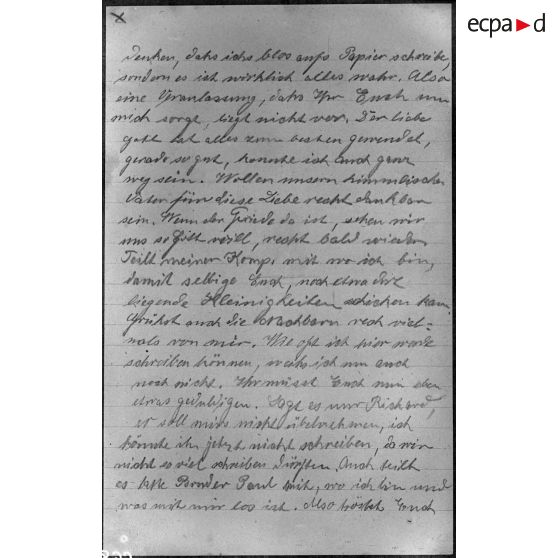 ecpad
denken, dahs ichs blos aufs Papier schreibe,
sondern es ist wirklich alles wahr. Also
eine Veranlassung, dahs Ihr Euch um
mich sorgt, liegt nicht vor. Der liebe
gott hat alles zum besten gewendet,
gerade so gut, konnte ich auch ganz
weg sein. Wollen unserm himmlischen
Vater für diese Liebe recht dankbar
sein. Wenn der Friede da ist, sehen wir
uns so Gott will, recht bald wieder.
Teilt meiner Komp. mit wo ich bin,
damit selbige Euch, noch etwa dort
liegende Kleinigkeiten schicken kann.
Grühst auch die Nachbarn rech viel=
mals von mir. Wie oft ich hier werde
schreiben können, weihs ich nun auch
noch nicht. Ihr müsst Euch nun eben
etwas gedulgigen. Sagt es nur Richard,
er soll mirs nicht übelnehmen, ich
könnte ihm jetzt nicht schreiben, da wir
nicht so viel schreiben dürften. Auch teilt
es bitte Bruder Paul mit, wo ich bin und
was mit mir los ist. Also tröstet Euch